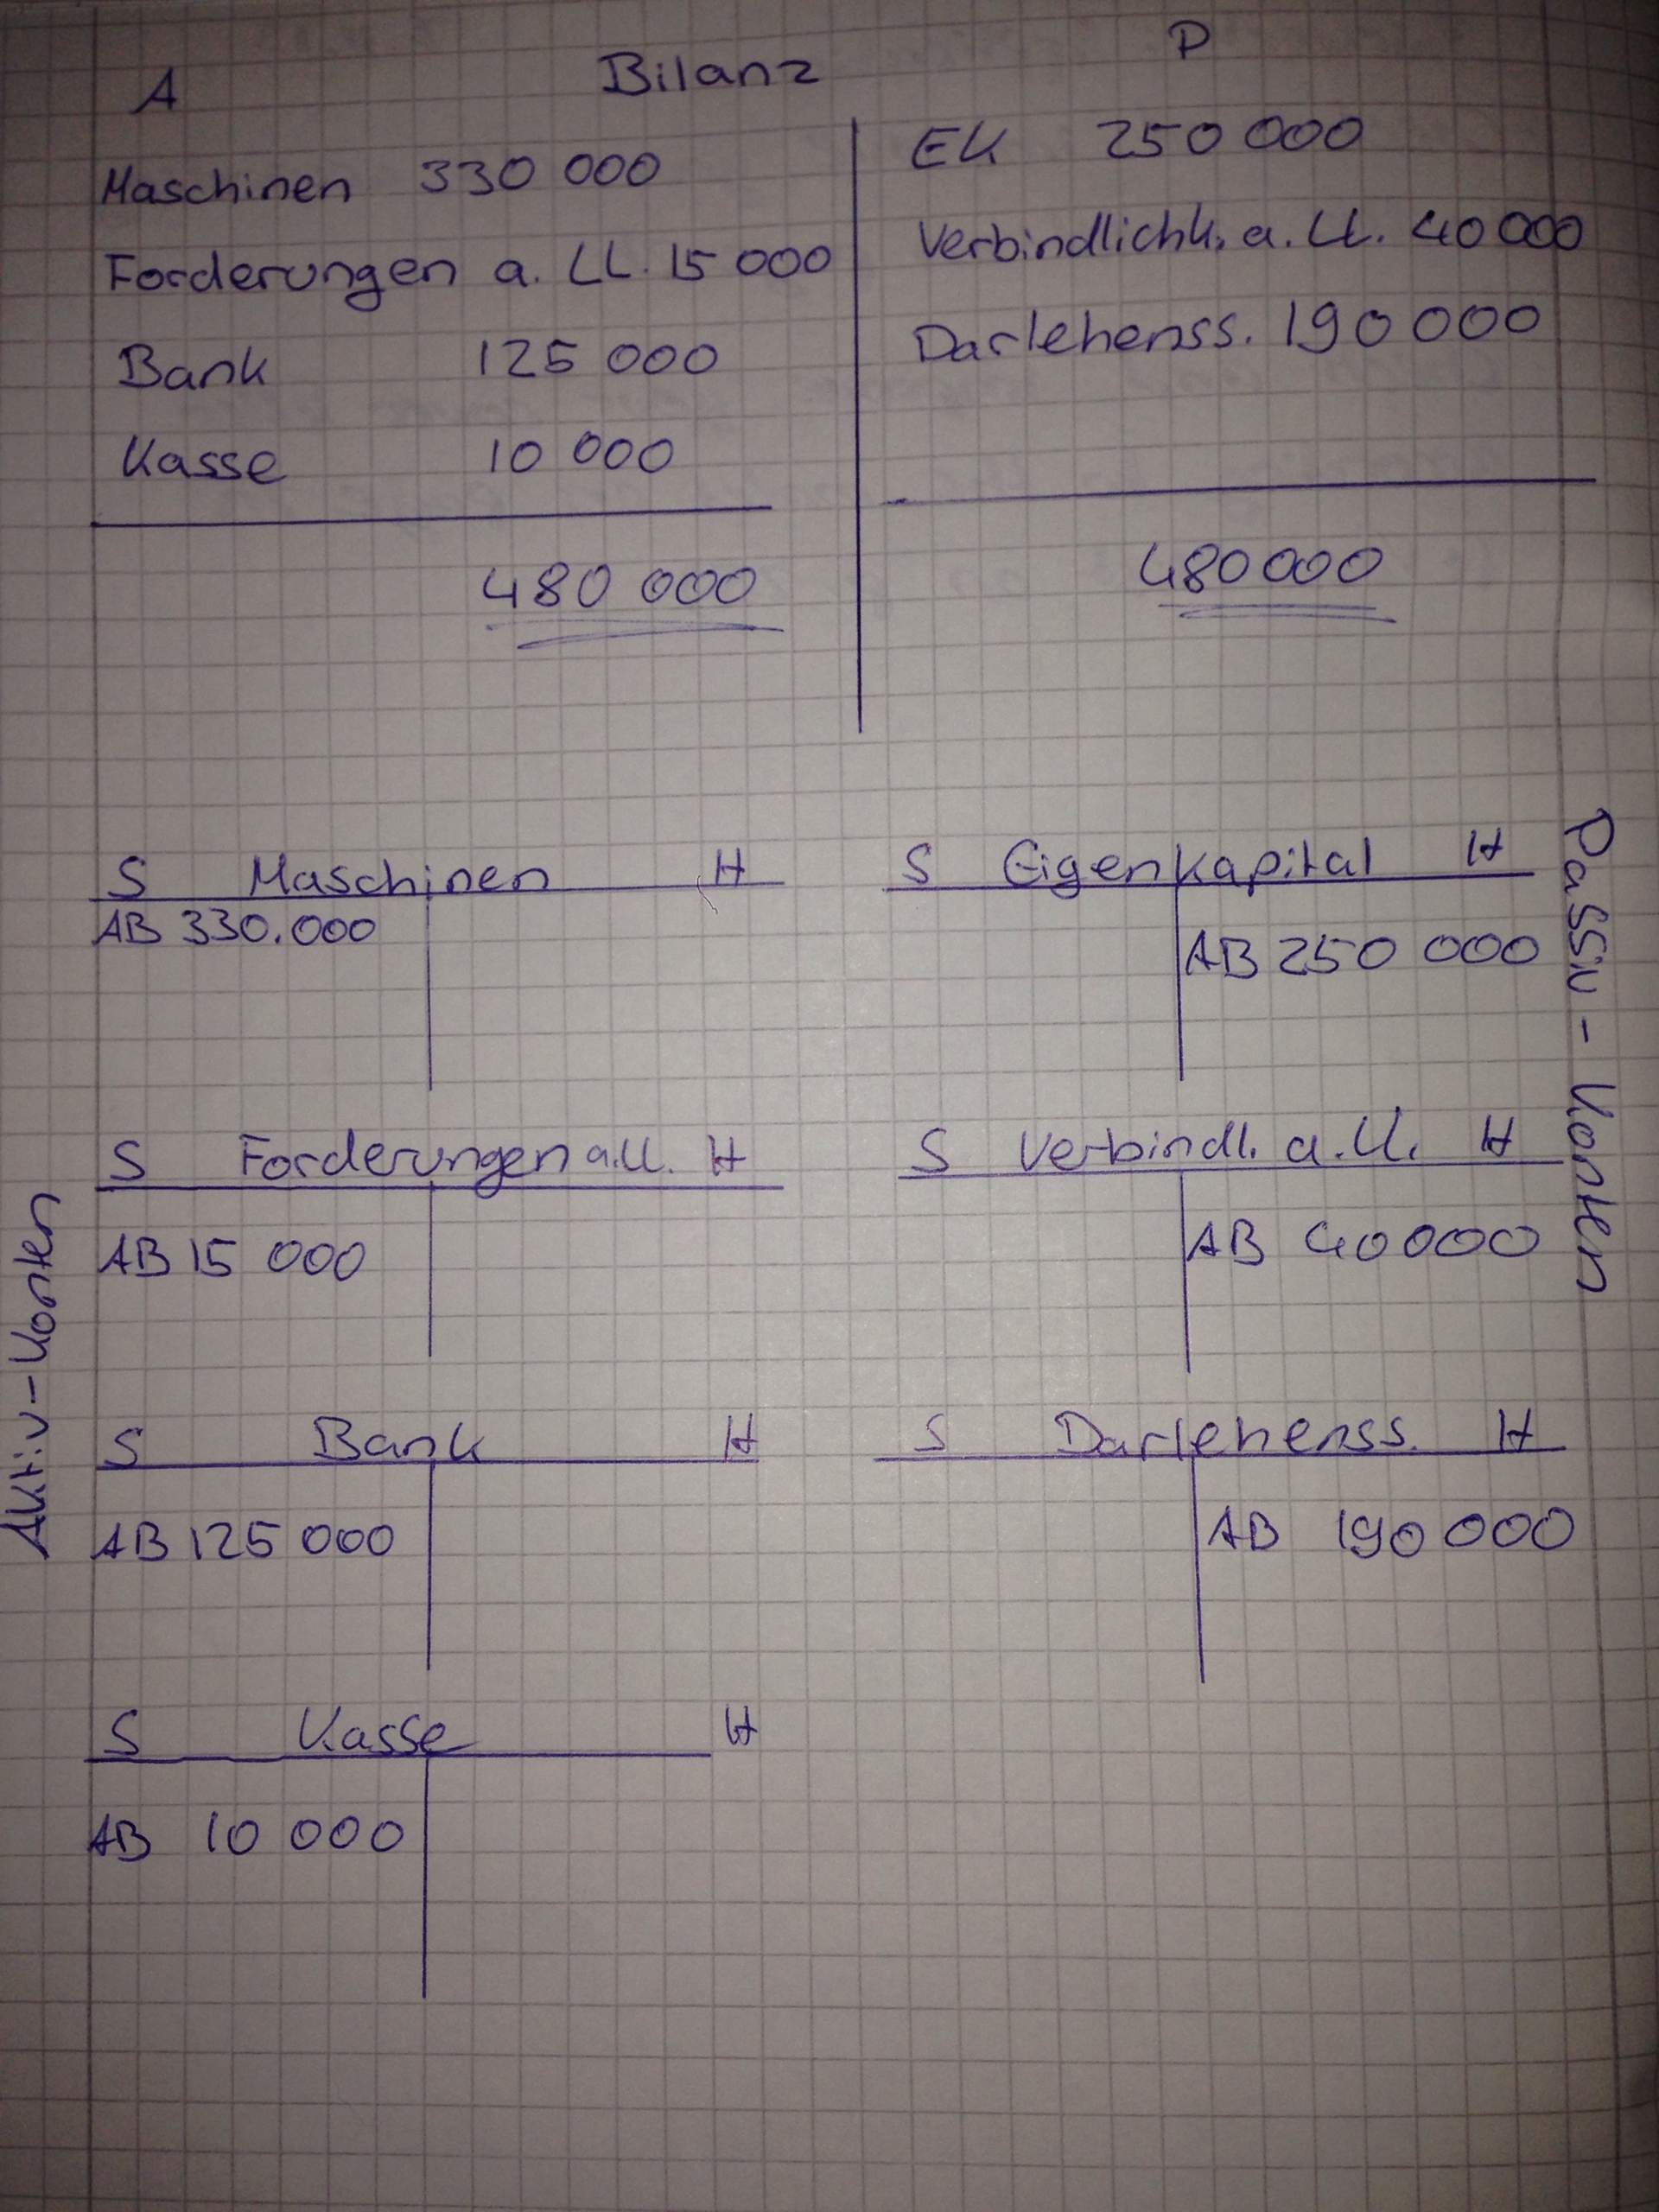 A Bilanz P
Maschinen 330 000
Forderungen a. LL. 15 000
Bank 125 000
Kasse 10 000
480 000
EK 250 000
Verbindlichk. a. LL. 40 000
Darlehenss. 190 000
480 000
Aktiv-Konten
S Maschinen H
AB 330.000
S Forderungen a.LL. H
AB 15 000
S Bank H
AB 125 000
S Kasse H
AB 10 000
Passiv-Konten
S Eigenkapital H
AB 250 000
S Verbindl. a.LL. H
AB 40 000
S Darlehenss. H
AB 190 000